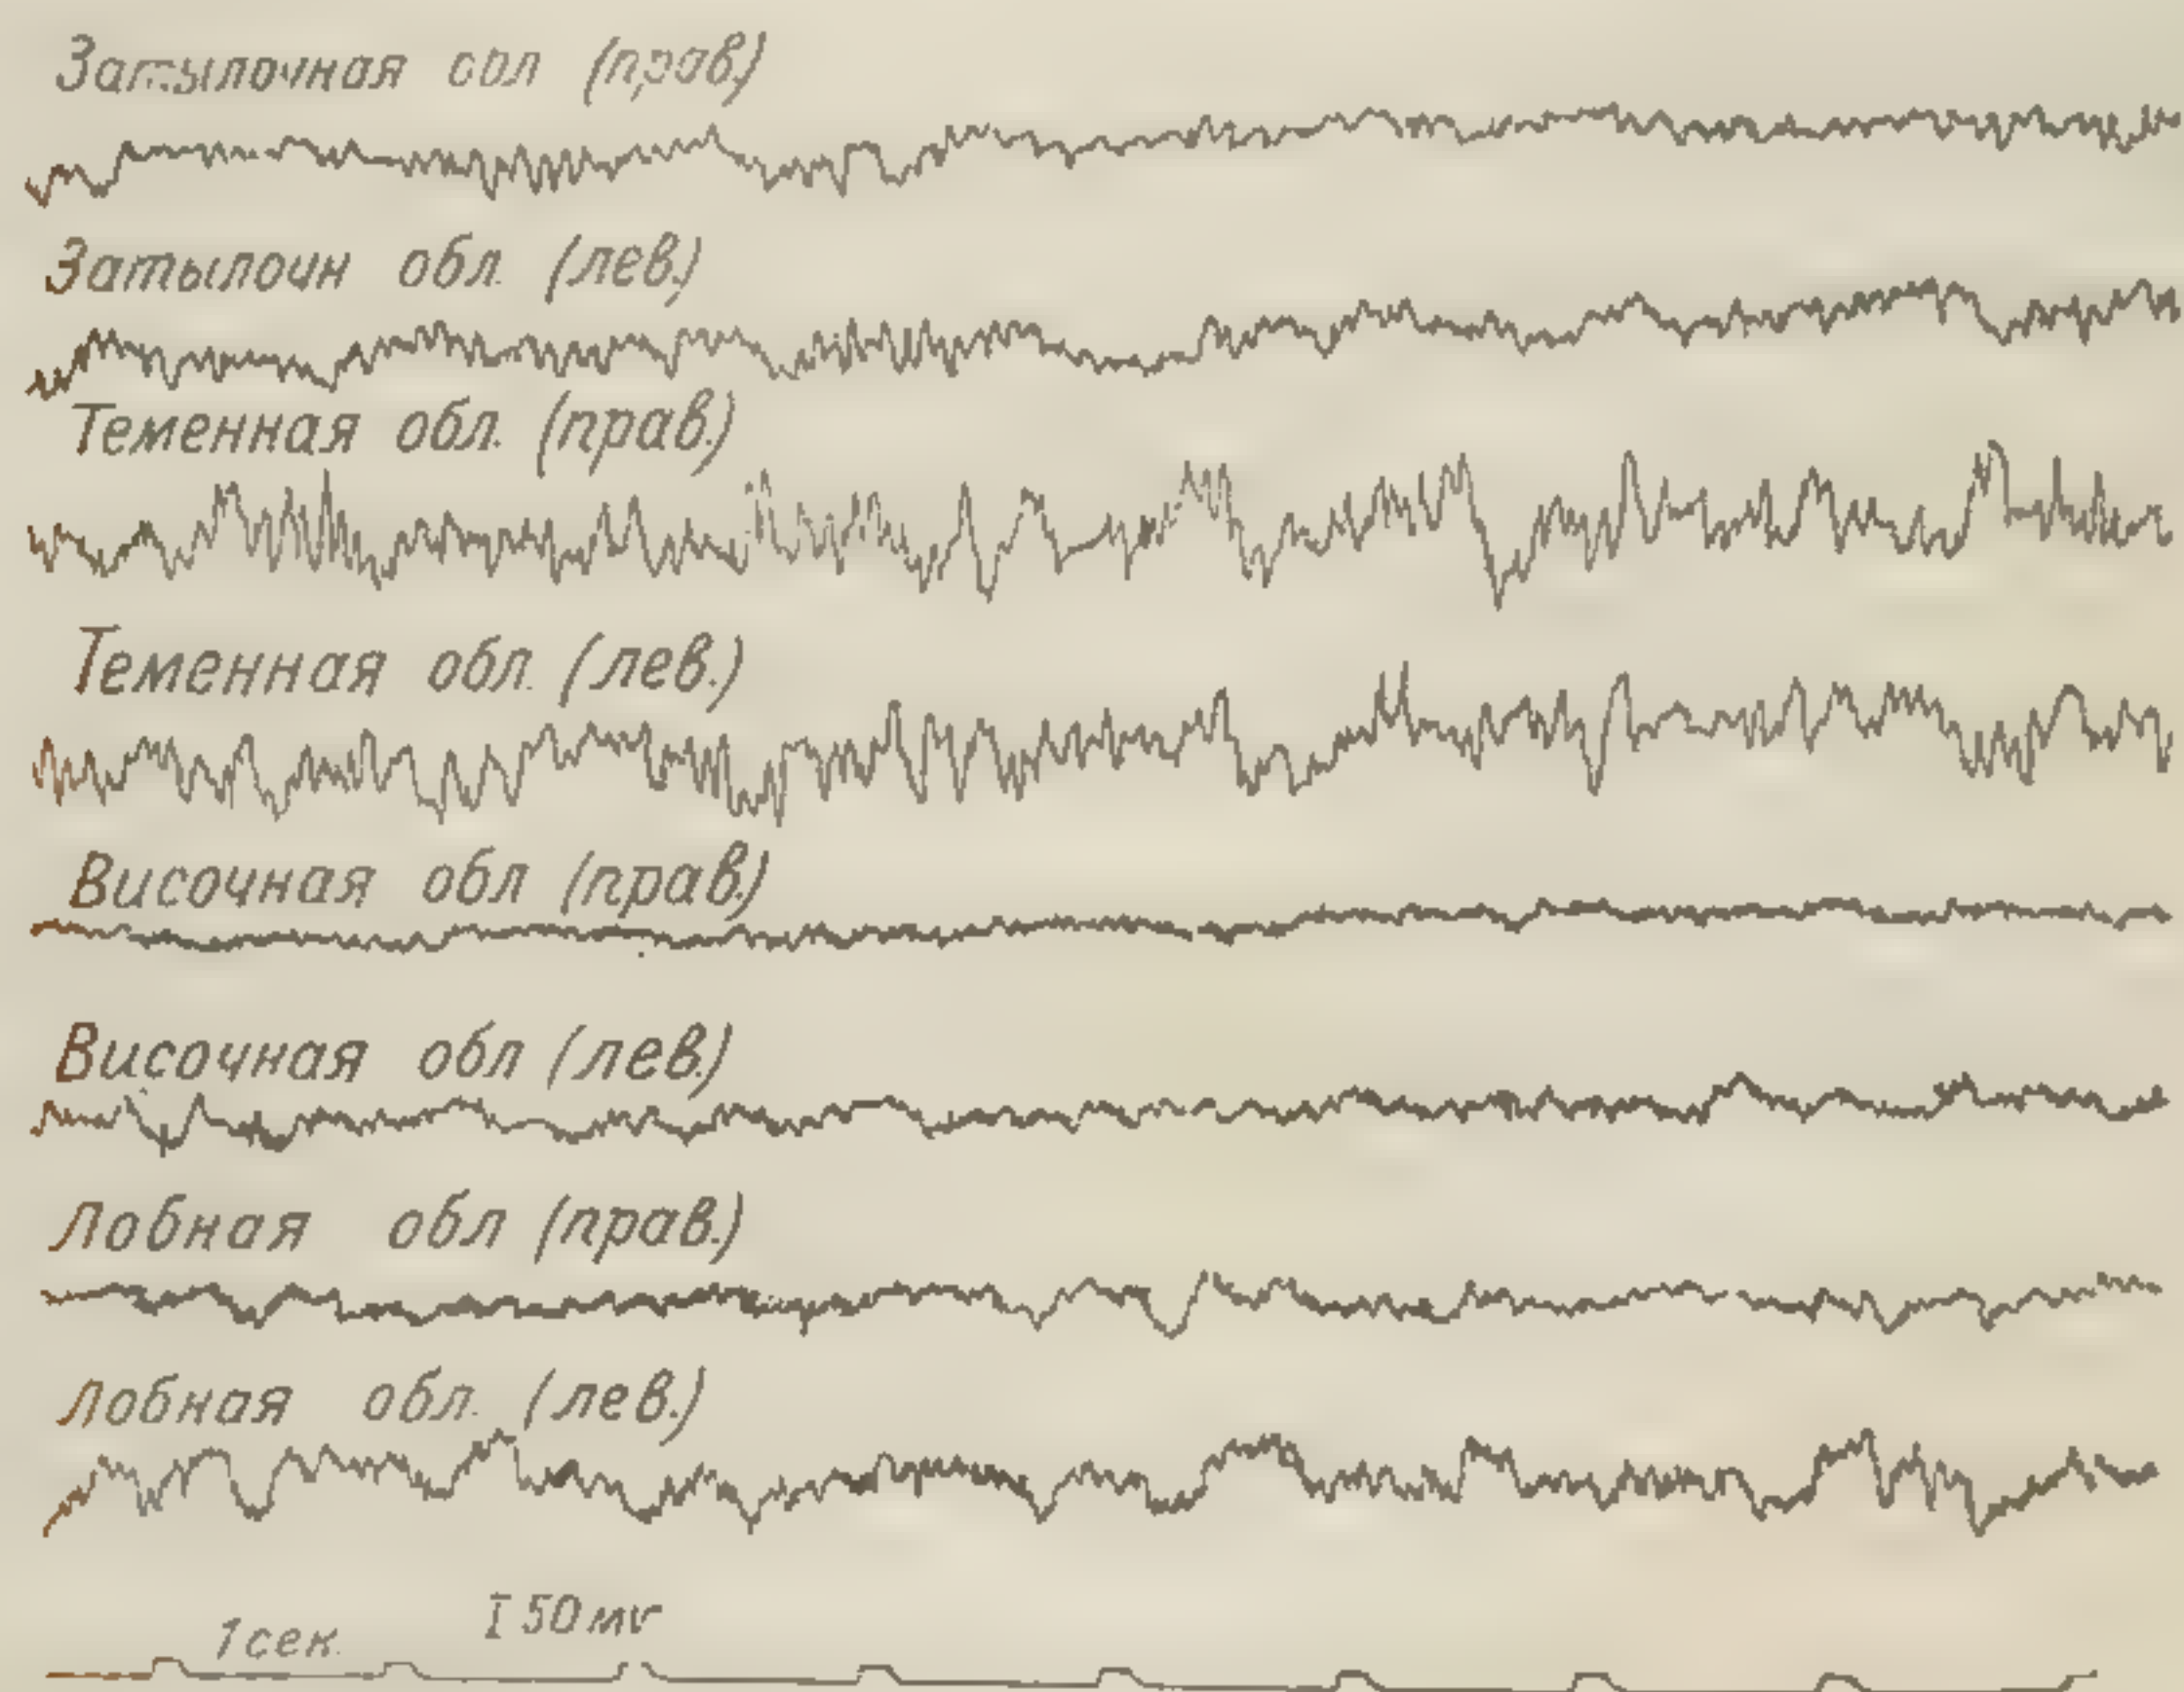 Затылочная обл (прав.)
Затылочн обл. (лев.)
Теменная обл. (прав.)
Теменная обл. (лев.)
Височная обл (прав.)
Височная обл (лев.)
Лобная обл (прав.)
Лобная обл. (лев.)
1 сек. I 50 mv